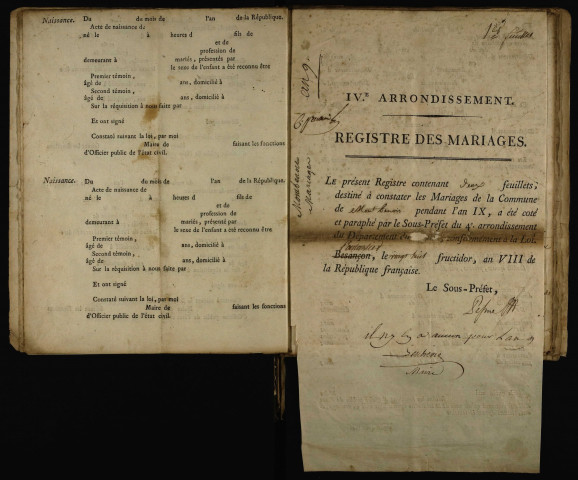 Naissance. Du du mois de l'an de la République.
Acte de naissance de
né le à heures d fils de
et de
profession de
demeurant à mariés, présentés par
le sexe de l'enfant a été reconnu être
Premier témoin,
âgé de ans, domicilié à
Second témoin,
âgé de ans, domicilié à
Sur la réquisition à nous faite par
Et ont signé
Constaté suivant la loi, par moi
Maire de faisant les fonctions
d'Officier public de l'état civil.
Naissance. Du du mois de l'an de la République.
Acte de naissance de
né le à heures d fils de
et de
profession de
demeurant à mariés, présentés par
le sexe de l'enfant a été reconnu être
Premier témoin,
âgé de ans, domicilié à
Second témoin,
âgé de ans, domicilié à
Sur la réquisition à nous faite par
Et ont signé
Constaté suivant la loi, par moi
Maire de faisant les fonctions
d'Officier public de l'état civil.
an 9
Mariages
IV.e ARRONDISSEMENT.
REGISTRE DES MARIAGES.
Le présent Registre contenant deux feuillets,
destiné à constater les Mariages de la Commune
de pendant l'an IX, a été coté
et paraphé par le Sous-Préfet du 4e. arrondissement
du Département du conformément à la Loi.
Besançon, le vingt huit fructidor, an VIII de
la République française.
Le Sous-Préfet,
il n'y en a aucun pour l'an 9
Maire